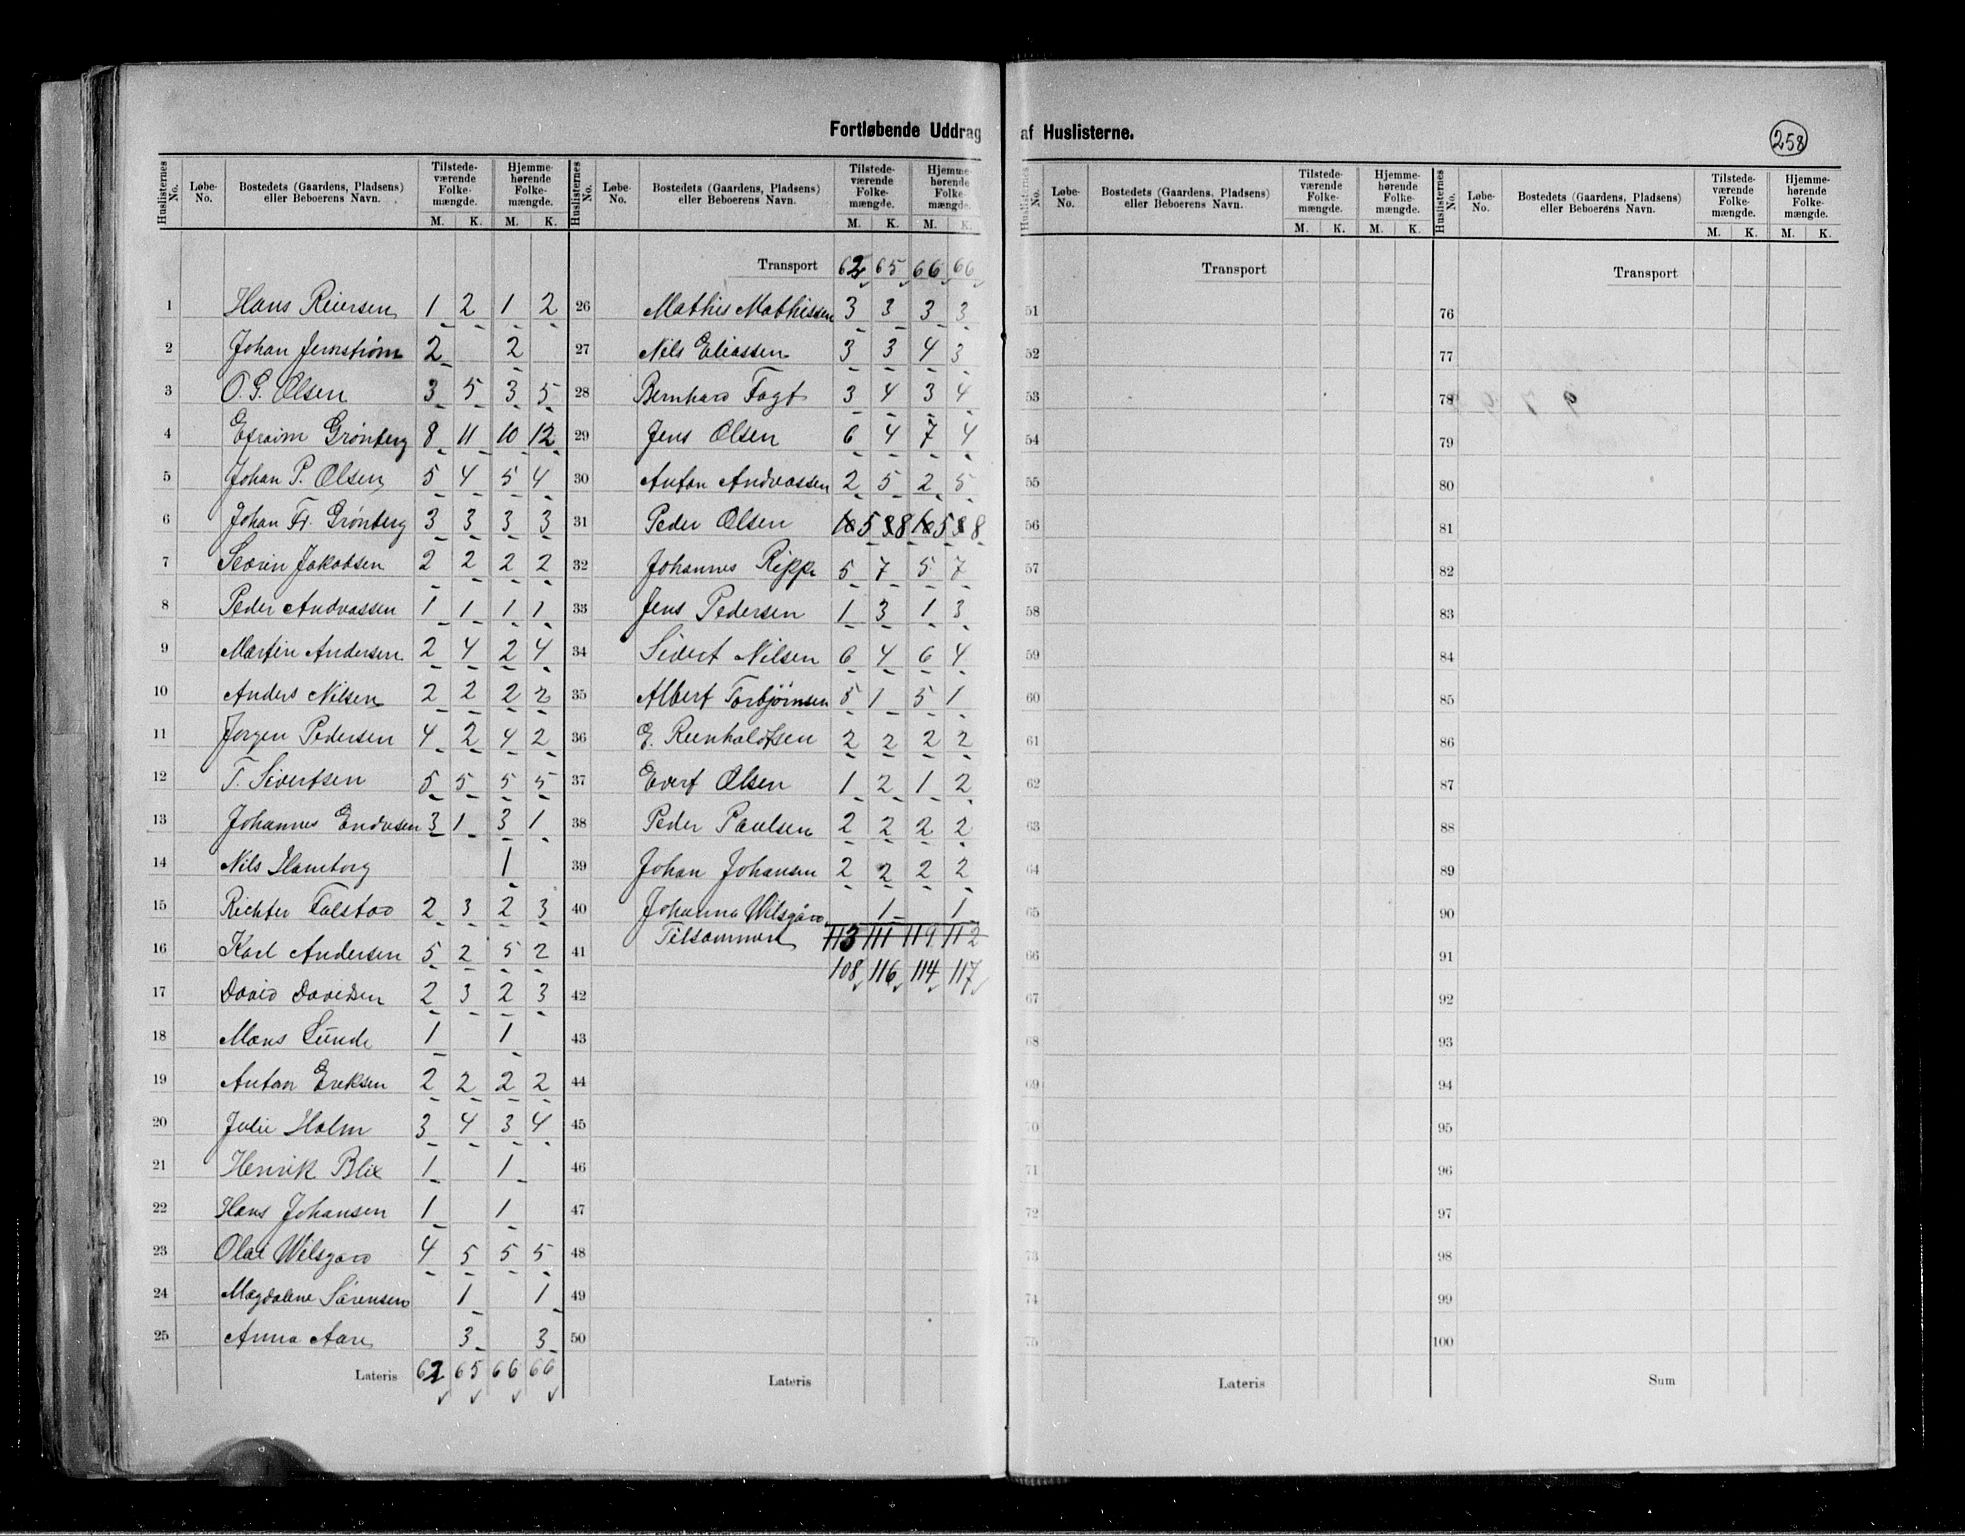 Fortløbende Uddrag af Huslisterne.
258
Huslisternes No. Løbe-No. Bostedets (Gaardens, Pladsens) eller Beboerens Navn. Tilstedeværende Folkemængde. M. K. Hjemmehørende Folkemængde. M. K.
1 Hans Reiersen 1 2 1 2
2 Johan Jernstrøm 2 2
3 O. G. Olsen 3 5 3 5
4 Efraim Grönberg 8 11 10 12
5 Johan P. Olsen 5 4 5 4
6 Johan Fr. Grönberg 3 3 3 3
7 Sevrin Jakobsen 2 2 2 2
8 Peder Andreassen 1 1 1 1
9 Martin Andersen 2 4 2 4
10 Anders Nilsen 2 2 2 2
11 Jørgen Pedersen 4 2 4 2
12 T. Sivertsen 5 5 5 5
13 Johannes Endresen 3 1 3 1
14 Nils Hamborg 1
15 Richter Falstad 2 3 2 3
16 Karl Andersen 5 2 5 2
17 David Davidsen 2 3 2 3
18 Mons Lunde 1 1
19 Anton Eriksen 2 2 2 2
20 Julie Holm 3 4 3 4
21 Henrik Blix 1 1
22 Hans Johansen 1 1
23 Olai Wilsgard 4 5 5 5
24 Magdalene Sørensen 1 1
25 Anna Aare 3 3
Lateris 62 65 66 66
Huslisternes No. Løbe-No. Bostedets (Gaardens, Pladsens) eller Beboerens Navn. Tilstedeværende Folkemængde. M. K. Hjemmehørende Folkemængde. M. K.
Transport 62 65 66 66
26 Mathis Mathissen 3 3 3 3
27 Nils Eliassen 3 3 4 3
28 Bernhard Fogt 3 4 3 4
29 Jens Olsen 6 4 7 4
30 Anton Andreassen 2 5 2 5
31 Peder Olsen 10 5 3 8 10 5 3 8
32 Johannes Rippe 5 7 5 7
33 Jens Pedersen 1 3 1 3
34 Sivert Nilsen 6 4 6 4
35 Albert Torbjørnsen 5 1 5 1
36 E. Reinholdtsen 2 2 2 2
37 Evert Olsen 1 2 1 2
38 Peder Paulsen 2 2 2 2
39 Johan Johansen 2 2 2 2
40 Johanna Wilsgård 1 1
Tilsammen 113 111 119 112
41 108 116 114 117
42
43
44
45
46
47
48
49
50
Lateris
Huslisternes No. Løbe-No. Bostedets (Gaardens, Pladsens) eller Beboerens Navn. Tilstedeværende Folkemængde. M. K. Hjemmehørende Folkemængde. M. K.
Transport
51
52
53
54
55
56
57
58
59
60
61
62
63
64
65
66
67
68
69
70
71
72
73
74
75
Lateris
Huslisternes No. Løbe-No. Bostedets (Gaardens, Pladsens) eller Beboerens Navn. Tilstedeværende Folkemængde. M. K. Hjemmehørende Folkemængde. M. K.
Transport
76
77
78
79
80
81
82
83
84
85
86
87
88
89
90
91
92
93
94
95
96
97
98
99
100
Sum